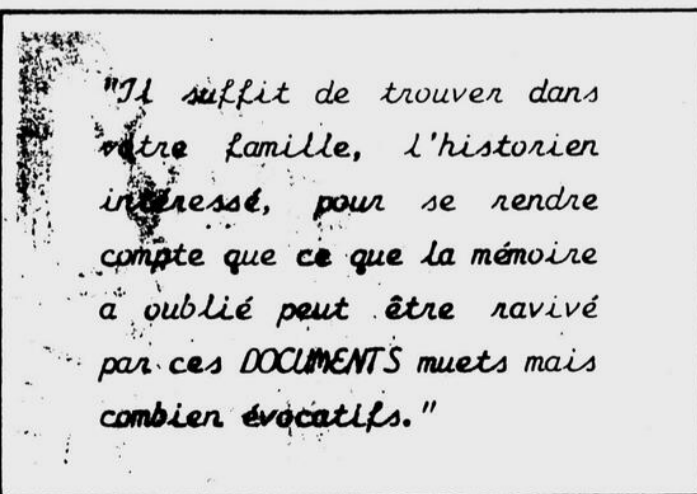 "Il suffit de trouver dans
votre famille, l'historien
intéressé, pour se rendre
compte que ce que la mémoire
a oublié peut être ravivé
par ces DOCUMENTS muets mais
combien évocatifs."